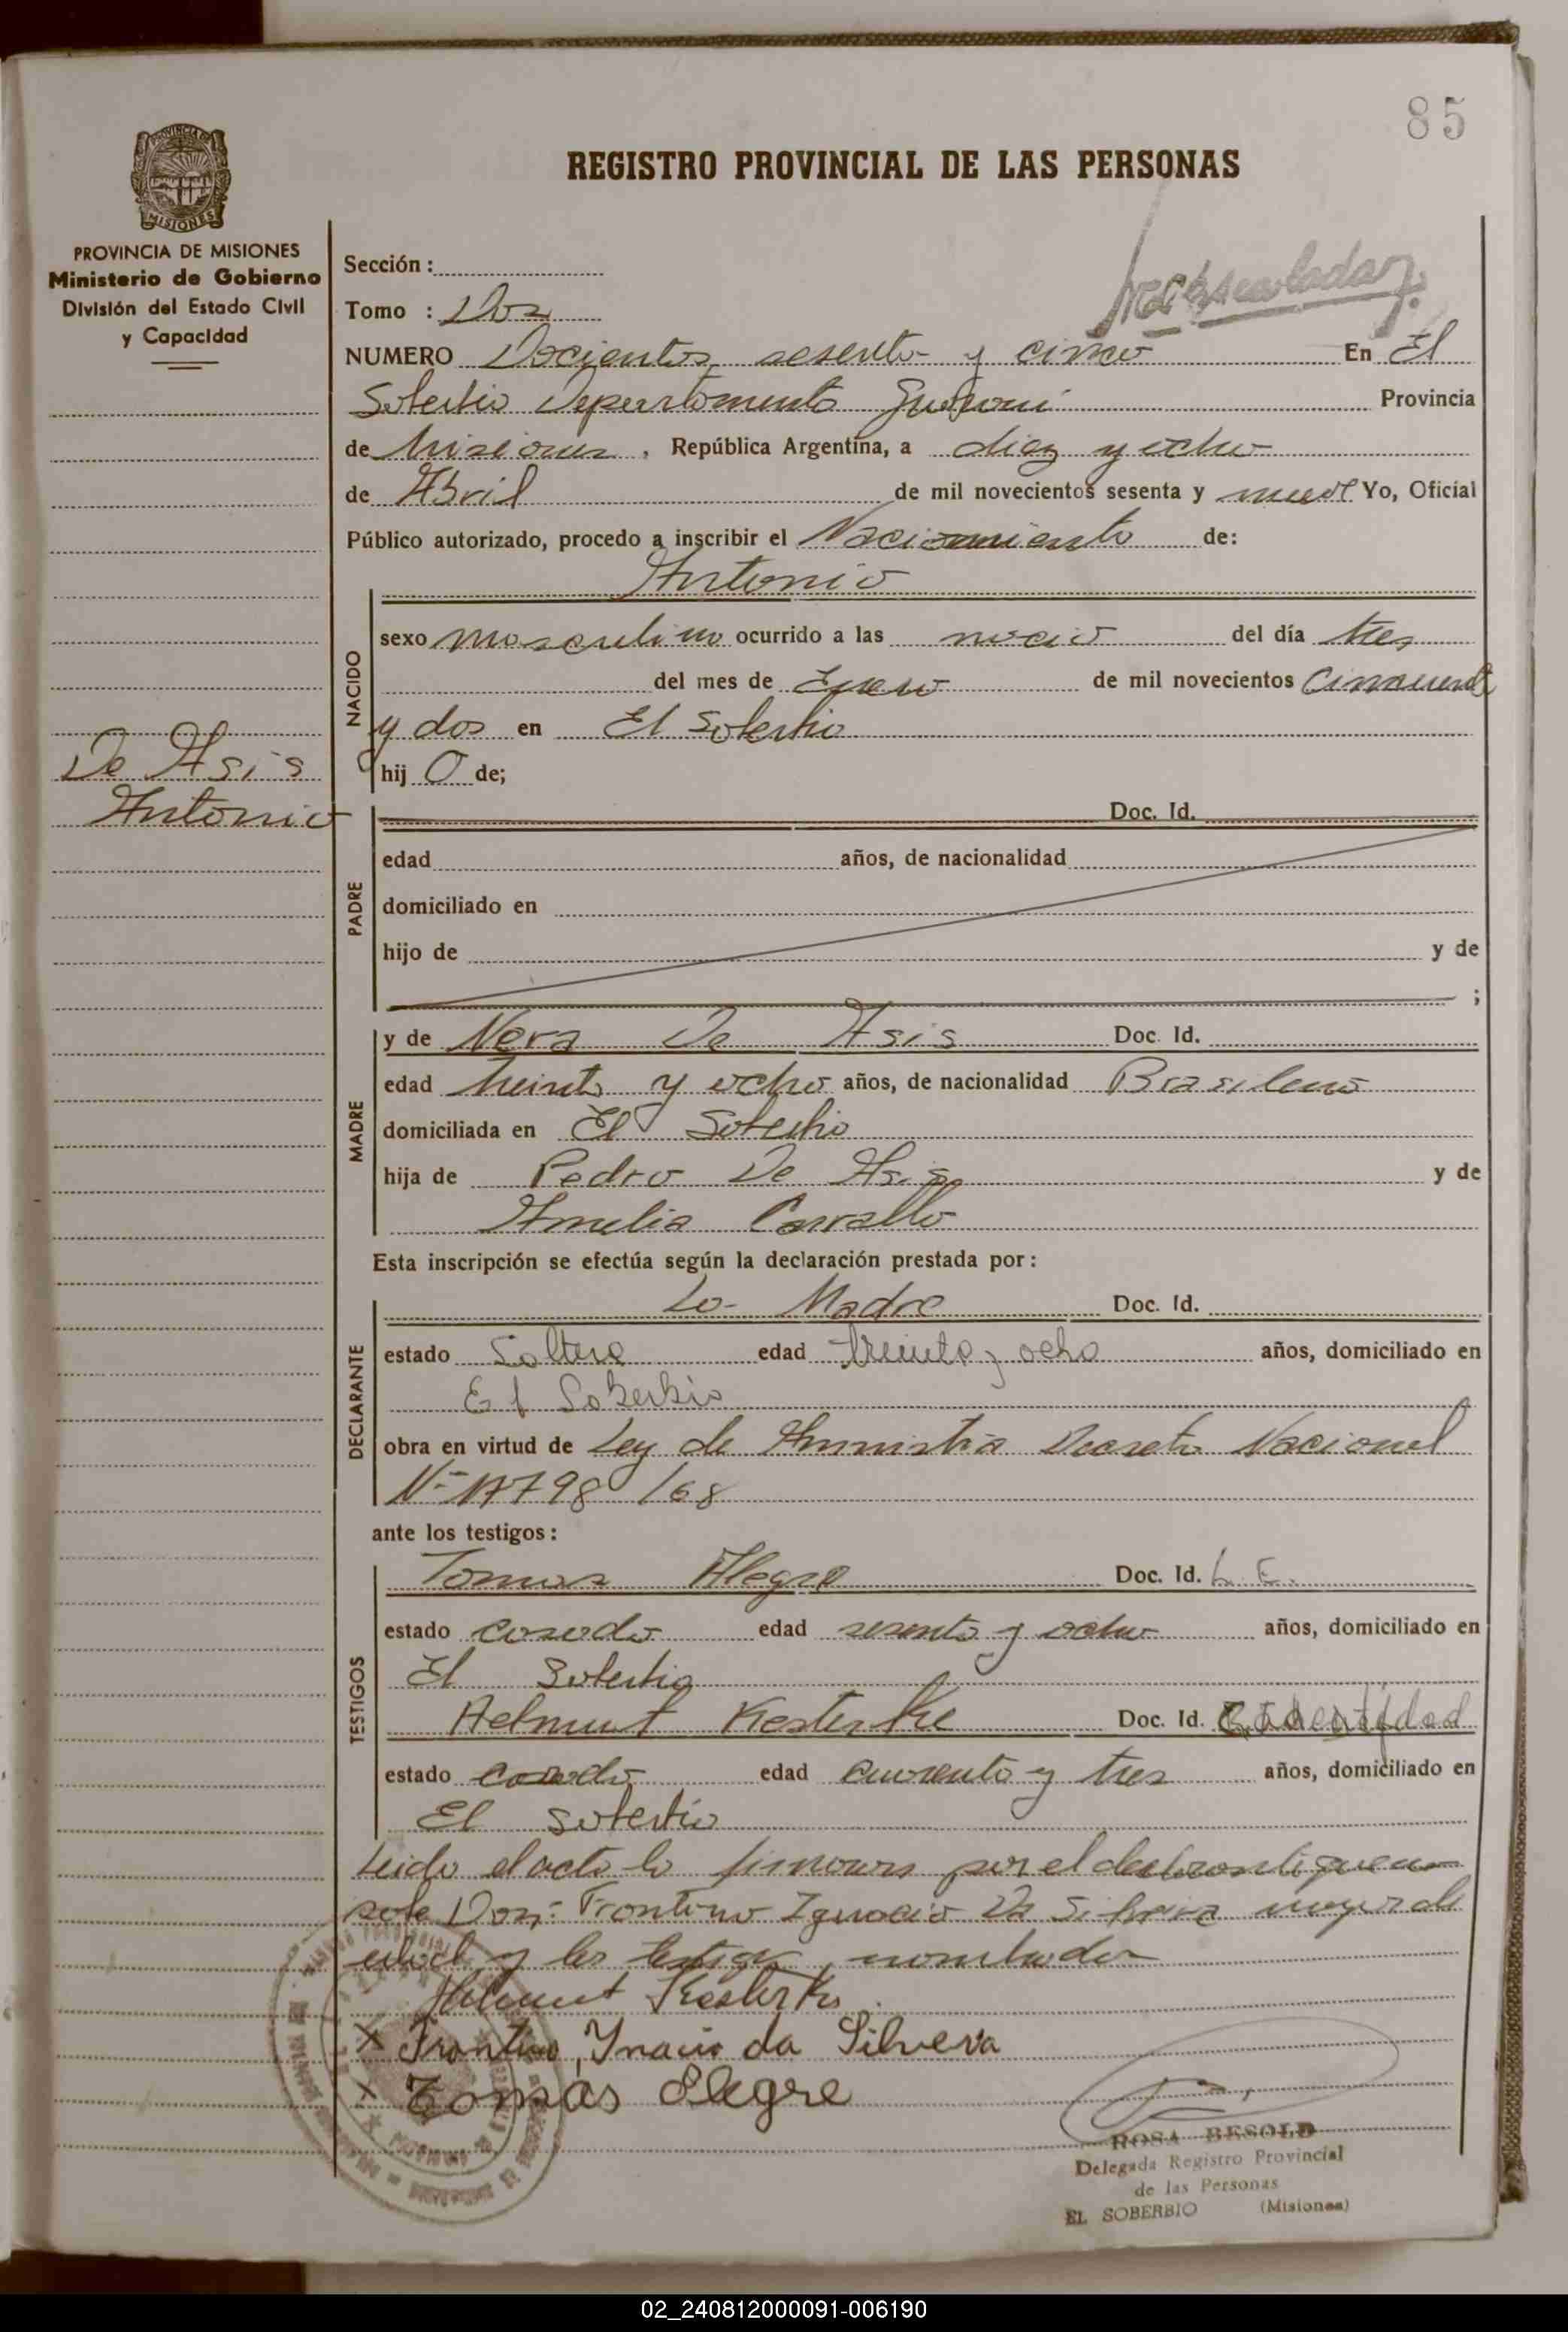 85
REGISTRO PROVINCIAL DE LAS PERSONAS
PROVINCIA DE MISIONES
Ministerio de Gobierno
División del Estado Civil
y Capacidad
Sección :
Tomo : Dos
NUMERO Docientos sesenta y cinco En El
Soberbio Departamento Guarani Provincia
de Misiones , República Argentina, a diez y ocho
de Abril de mil novecientos sesenta y nueve Yo, Oficial
Público autorizado, procedo a inscribir el Nacimiento de:
Antonio
NACIDO
sexo masculino ocurrido a las nacio del día tres
del mes de Enero de mil novecientos Cincuenta
y dos en El Soberbio
hij O de;
De Asis
Antonio
PADRE
Doc. Id.
edad años, de nacionalidad
domiciliado en
hijo de y de
;
MADRE
y de Nera De Asis Doc. Id.
edad treinta y ocho años, de nacionalidad Brasileña
domiciliada en El Soberbio
hija de Pedro De Asis y de
Amelia Carvallo
Esta inscripción se efectúa según la declaración prestada por :
DECLARANTE
La Madre Doc. Id.
estado Soltera edad treinta y ocho años, domiciliado en
El Soberbio
obra en virtud de Ley de Amnistia Decreto Nacional
Nº 17798 /68
ante los testigos :
TESTIGOS
Tomas Alegre Doc. Id. L. E.
estado casado edad sesenta y ocho años, domiciliado en
El Soberbio
Helmut Kesterke Doc. Id.
estado casado edad cuarenta y tres años, domiciliado en
El Soberbio
Leido el acta lo firmaron por el declarante que no
sabe Don: Frontino Ignacio Da Silveira mayor de
edad y los testigos nombrados
Helmut
X Frontino Inacio da Silvera
X Tomas Alegre
ROSA BESOLD
Delegada Registro Provincial
de las Personas
EL SOBERBIO (Misiones)
02_240812000091-006190